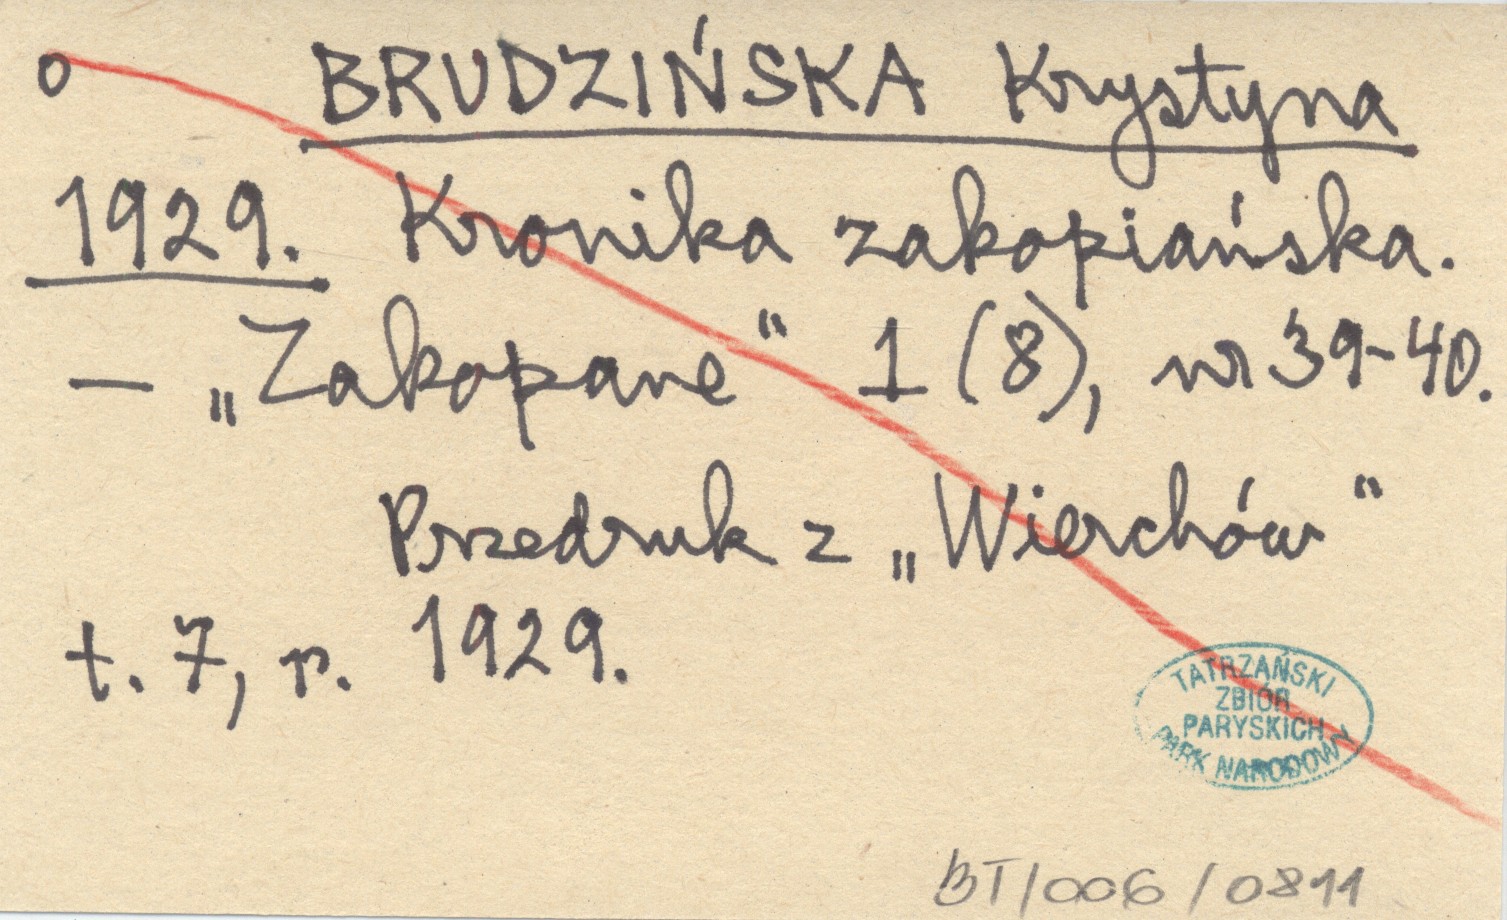 o BRUDZIŃSKA Krystyna
1929. Kronika zakopiańska.
— „Zakopane“ 1 (8), nr 39-40.
Przedruk z „Wierchów“
t. 7, r. 1929.
TATRZAŃSKI
ZBIÓR
PARYSKICH
PARK NARODOWY
BT/006/0811